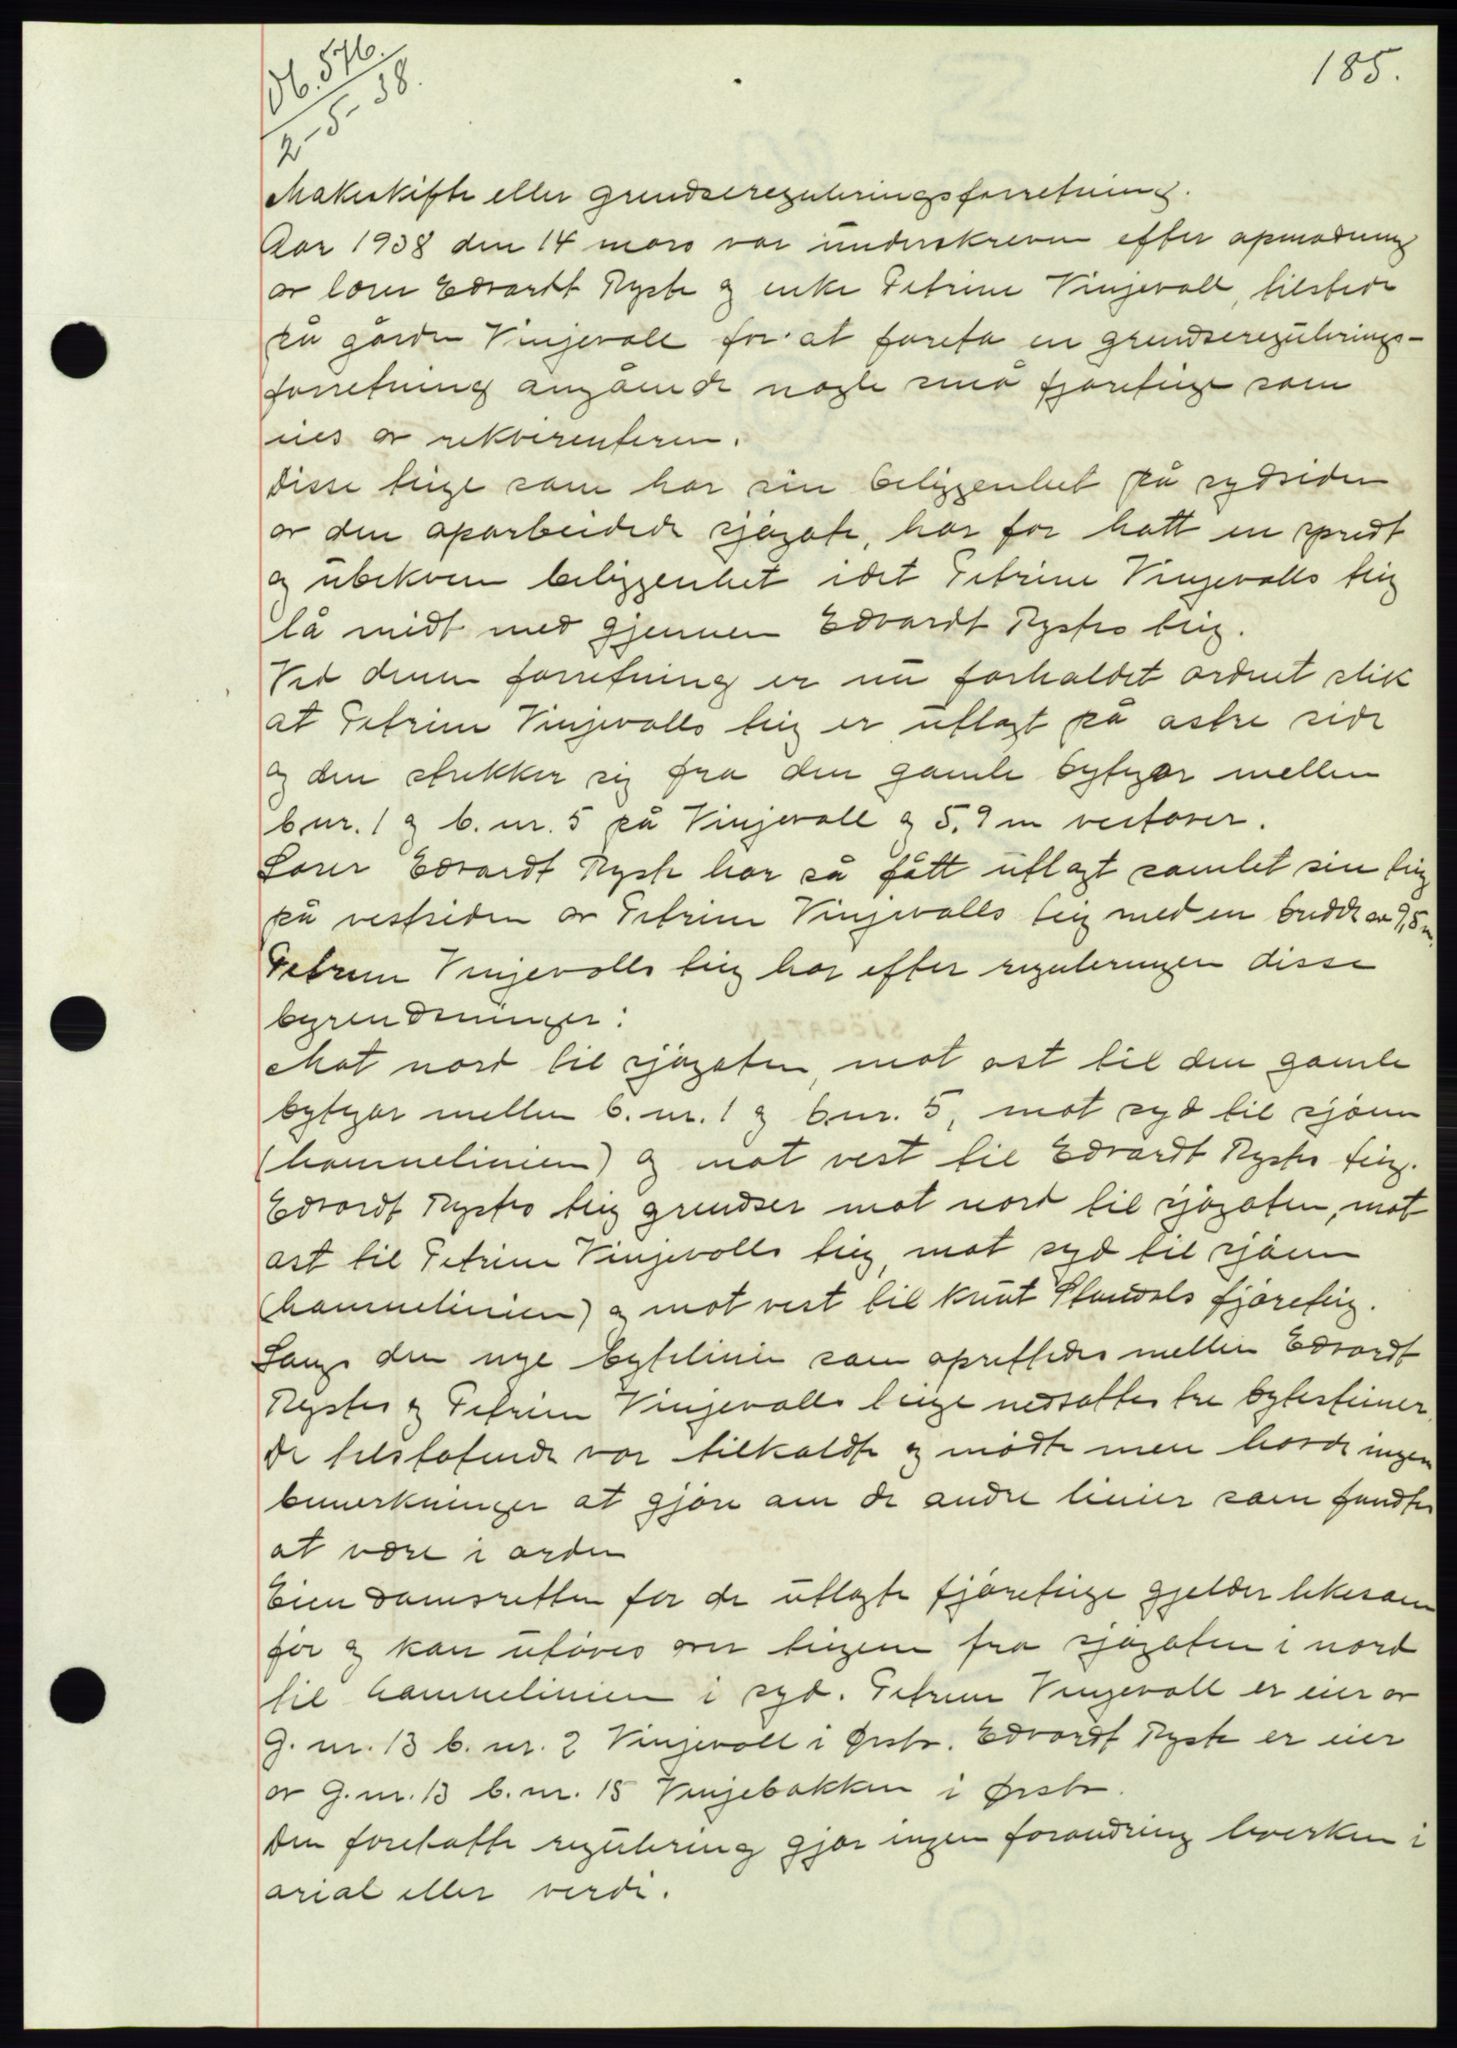 Db. 576.
2-5-38.
185.
Makeskifte eller grendsereguleringsforretning.
Aar 1938 den 14 mars var underskreven efter opmodning
av lærer Edvardt Ryste og enke Petrine Vinjevoll, tilstede
på gården Vinjevoll for at foreta en grendseregulerings-
forretning angående nogle små fjøreteige som
eies av rekvirenteren.
Disse teige som har sin beliggenhet på sydsiden
av den oparbeidede sjøgate, har før hatt en spredt
og ubekvem beliggenhet idet Petrine Vinjevolls teig
lå midt med gjennem Edvardt Rystes teig.
Ved denne forretning er nu forholdet ordnet slik
at Petrine Vinjevolls teig er utlagt på østre side
og den strekker sig fra den gamle bytegar mellem
b.nr. 1 og b.nr. 5 på Vinjevoll og 5,9 m vestover.
Lærer Edvardt Ryste har så fått utlagt samlet sin teig
på vestsiden av Petrine Vinjevolls teig med en bredde av 9,5 m.
Petrine Vinjevolls teig har efter reguleringen disse
begrendsninger:
Mot nord til sjøgaten, mot øst til den gamle
bytegar mellem b.nr. 1 og b.nr. 5, mot syd til sjøen
(havnelinien) og mot vest til Edvardt Rystes teig.
Edvardt Rystes teig grendser mot nord til sjøgaten, mot
øst til Petrine Vinjevolls teig, mot syd til sjøen
(havnelinien) og mot vest til Knut Standals fjøreteig.
Langs den nye bytelinie som oprettedes mellem Edvardt
Rystes og Petrine Vinjevolls teige nedsattes tre bytesteiner.
De tilstøtende var tilkaldte og mødte men havde ingen
bemerkninger at gjøre om de andre linier som fandtes
at være i orden
Eiendomsretten for de utlagte fjøreteige gjelder likesom
før og kan utøves over teigene fra sjøgaten i nord
til havnelinien i syd. Petrine Vinjevoll er eier av
G.nr. 13 b.nr. 2 Vinjevoll i Ørsta. Edvardt Ryste er eier
av G.nr. 13 b.nr. 15 Vinjebakken i Ørsta.
Den foretatte regulering gjør ingen forandring hverken i
arial eller verdi.